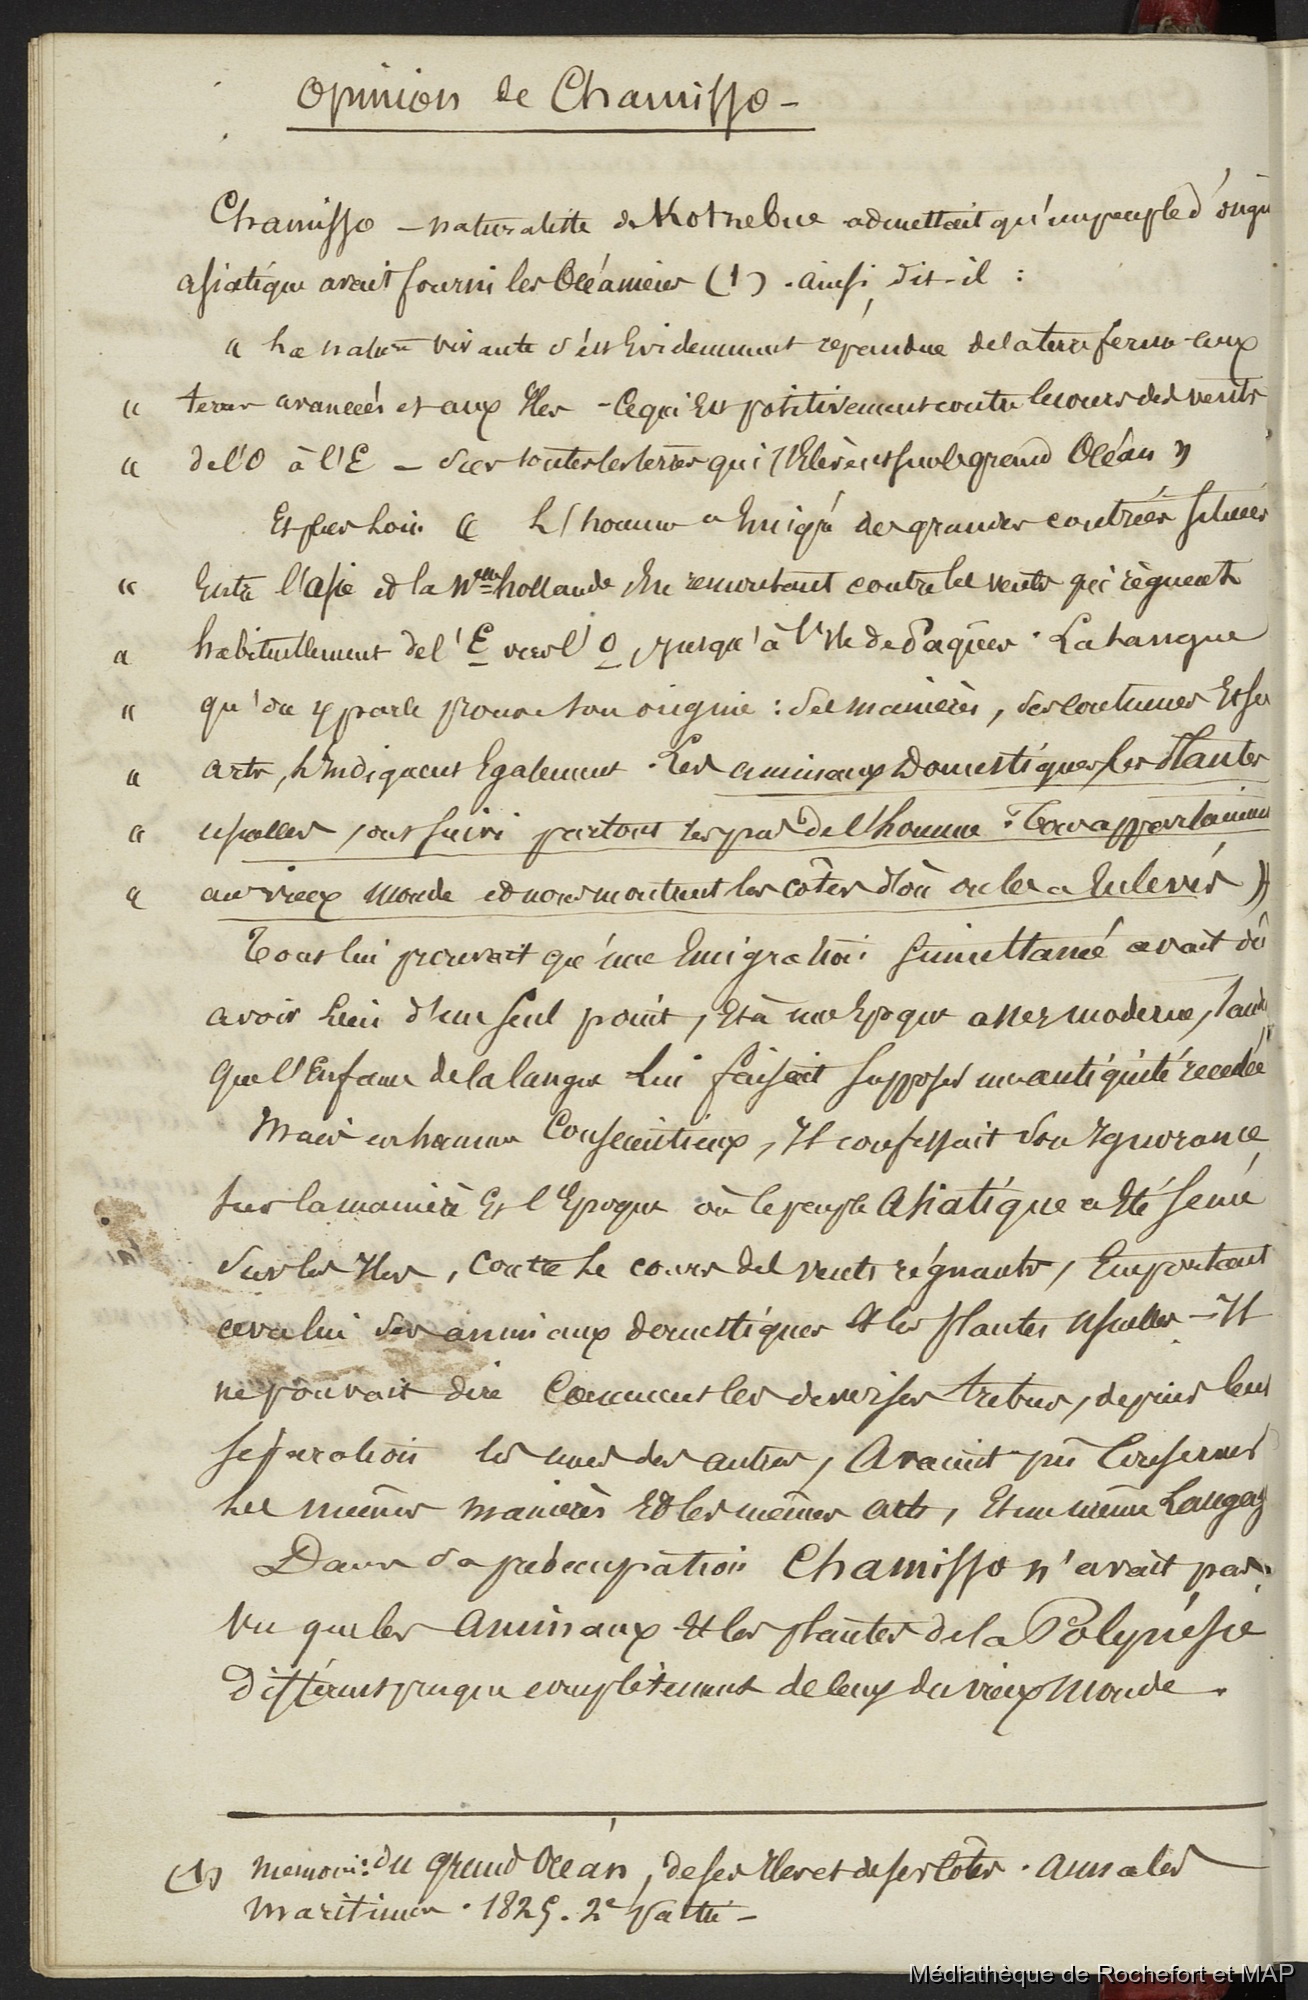 Opinion de Chamisso -
Chamisso - naturaliste de Kotzebue admettait qu'un peuple d'origi
asiatique avait fourni les Océaniens (1). ainsi, dit-il :
" La nature vivante s'est Evidemment répandue de la terre ferme aux
" terres avancées et aux Iles - Ce qui Est positivement contre le cours des vents
" de l'O à l'E - sur toutes les terres qui s'Elèvent sur le grand Océan "
Et plus loin " L'homme a Emigré des grandes contrées situées
" Entre l'asie et la Nelle hollande, En remontant contre les vents qui règnent
" habituellement de l'E vers l'O, jusqu'à l'Ile de Pâques. La Langue
" qu'on y parle prouve son origine : ses manières, ses coutumes Et ses
" arts, L'Indiquent Egalement. Les animaux Domestiques, les Plantes
" usuelles, ont suivi partout les pas de l'homme : Tous appartiennen
" au vieux monde et nous montrent les côtes d'où on les a Enlevés "
Tout lui prouvait qu'une Emigration simultanée avait dû
avoir Lieu d'un seul point, Et à une Epoque assez moderne, tandi
que l'Enfance de la langue lui faisait supposer une antiquité reculée
Mais en homme Consciencieux, Il confessait son Ignorance
sur la manière Et l'Epoque où le peuple Asiatique a Eté semé
sur les Iles, Contre le cours des vents régnants, Emportant
avec lui ses animaux domestiques Et les plantes usuelles - Il
ne pouvait dire Comment les diverses tribus, depuis leur
séparation les unes des autres, Avaient pu Conserver
les mêmes manières Et les mêmes arts, Et un même Langag
Dans sa préoccupation Chamisso n'avait pas
vu que les Animaux Et les plantes de la Polynésie
Diffèrent presque complètement de ceux du vieux Monde.
(1) memoire du grand Océan, de ses Iles et de ses Côtes. Annales
Maritimes. 1825. 2e Partie -
Médiathèque de Rochefort et MAP